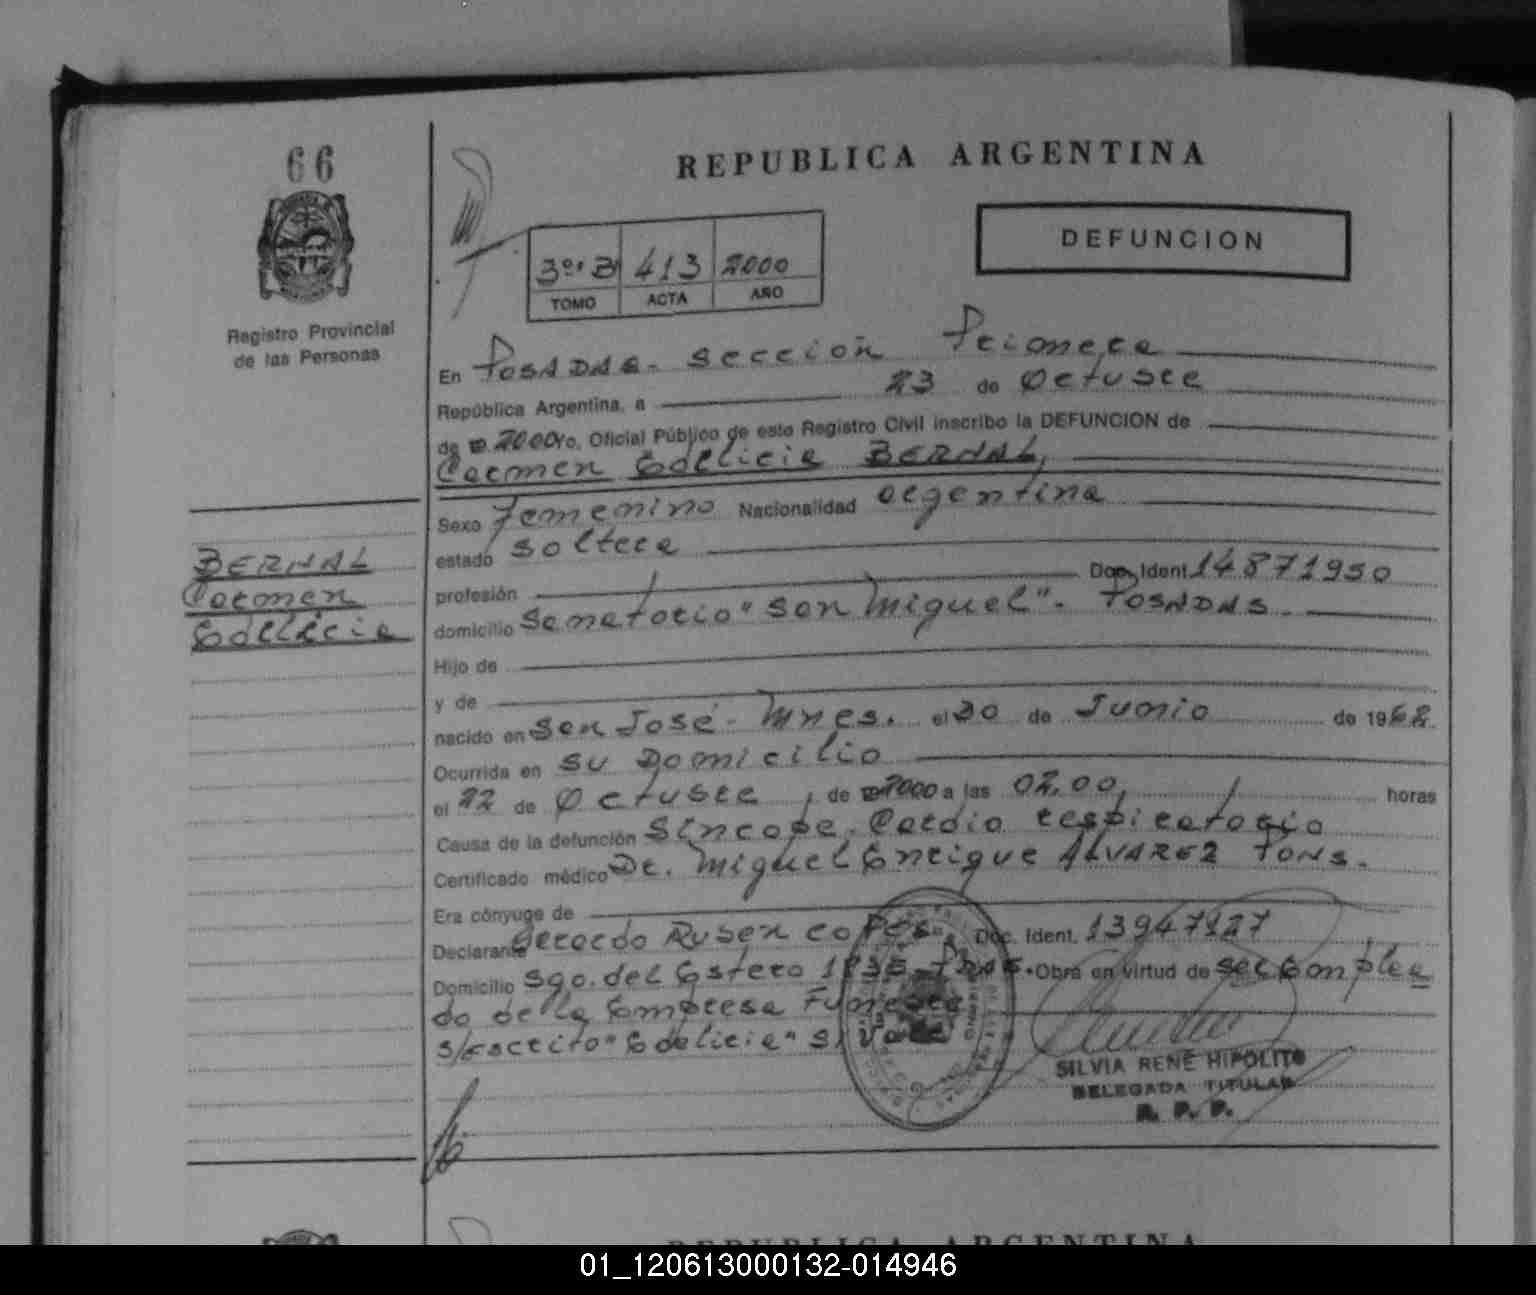 66
Registro Provincial
de las Personas
REPUBLICA ARGENTINA
DEFUNCION
3º"B" 413 2000
TOMO ACTA AÑO
En POSADAS - Sección Primera
República Argentina, a 23 de Octubre
de 2000 Yo, Oficial Público de este Registro Civil inscribo la DEFUNCION de
Carmen Edelicia BERNAL,
Sexo Femenino Nacionalidad argentina
estado soltera
profesión Doc. Ident 14871950
domicilio Sanatorio "San Miguel". POSADAS
Hijo de
y de
nacido en San José - Mnes. el 30 de Junio de 1962
Ocurrida en su Domicilio
el 22 de Octubre, de 2000 a las 02.00, horas
Causa de la defunción Síncope Cardio respiratorio
Certificado médico Dr. Miguel Enrique ALVAREZ PONS.
Era cónyuge de
Declarante Gerardo Ruben Doc. Ident. 13947127
Domicilio Sgo. del Estero Obra en virtud de ser Emplea
do de la Empresa
s/escrito "Edelicia"
BERNAL
Carmen
Edelicia
SILVIA RENE HIPOLITO
DELEGADA TITULAR
R. P. P.
REPUBLICA ARGENTINA
01_120613000132-014946